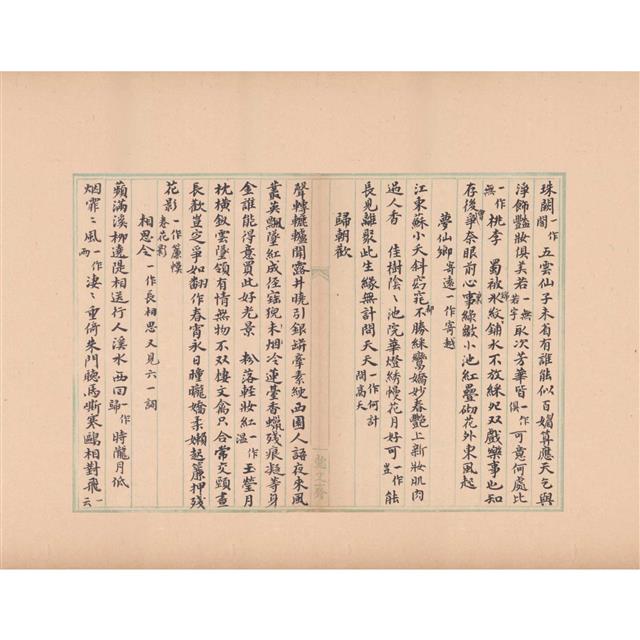 珠闕一作閣五雲仙子未省有誰能似百媚算應天乞與
淨飾豔妝俱美若一無若字取次芳華皆一作俱可意何處比
一作無桃李 蜀被錦紋鋪水不放綵鴛雙戲樂事也知
存後會爭奈眼前心事裏綠皺小池紅疊砌花外東風起
夢仙鄉寄遠一作寄越
江東蘇小夭斜窈窕都不勝綵鸞嬌妙春豔上新妝肌肉
過人香 佳樹陰〻池院華燈綉幔花月好可一作豈能
長見離聚此生緣無計問天天一作何計問高天
歸朝歡
聲轉轆轤聞露井曉引銀缾牽素綆西園人語夜來風
叢英飄墜紅成徑寶猊未烟冷蓮臺香蠟殘痕凝等身
金誰能得意買此好光景 粉落輕妝紅一作溫玉瑩月
枕橫釵雲墜領有情無物不双棲文禽只合常交頸晝
長歡豈定爭如翻作春宵永日瞳曨嬌柔嬾起簾押殘
花影一作簾幙卷花影
相思令一作長相思又見六一詞
蘋滿溪柳遶隄相送行人溪水西回一作歸時隴月低
烟霏〻風一作雨凄〻重倚朱門聽馬嘶寒鷗相對飛一云